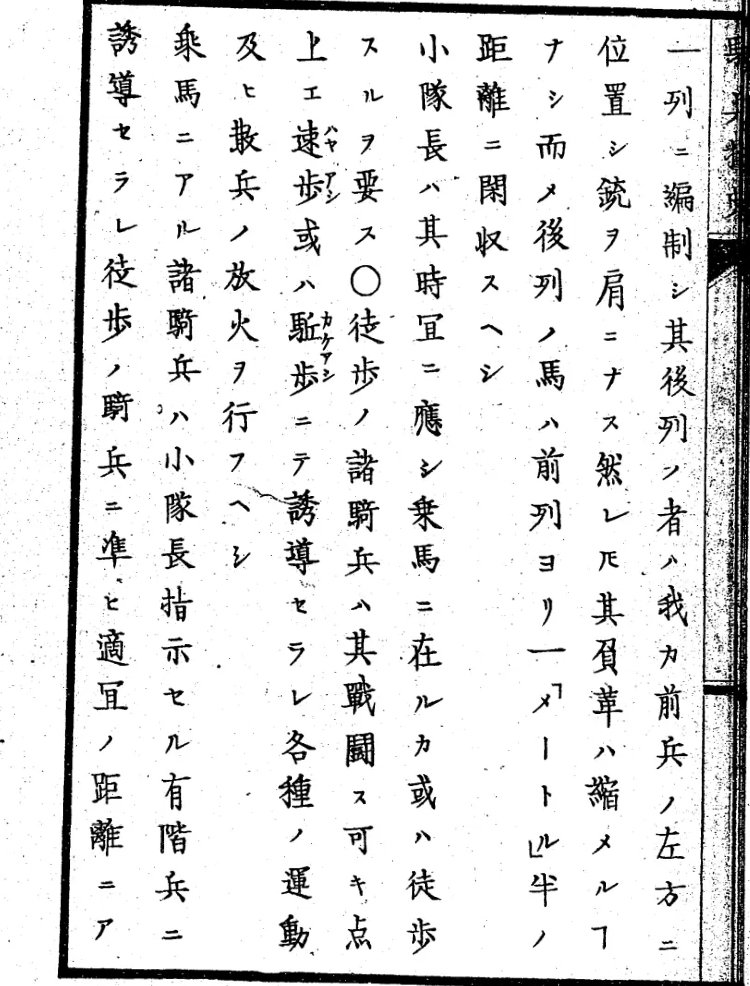 一列ニ編制シ其後列ノ者ハ我カ前兵ノ左方ニ
位置シ銃ヲ肩ニナス然レ𪜈其負革ハ縮メルヿ
ナシ而メ後列ノ馬ハ前列ヨリ一「メートル」半ノ
距離ニ閉収スヘシ
小隊長ハ其時宜ニ應シ乗馬ニ在ルカ或ハ徒歩
スルヲ要ス〇徒歩ノ諸騎兵ハ其戰鬪ス可キ点
上エ速歩或ハ駈歩ニテ誘導セラレ各種ノ運動
ハヤアシ
カケアシ
及ヒ散兵ノ放火ヲ行フヘシ
乗馬ニアル諸騎兵ハ小隊長指示セル有階兵ニ
誘導セラレ徒歩ノ騎兵ニ準ヒ適宜ノ距離ニア